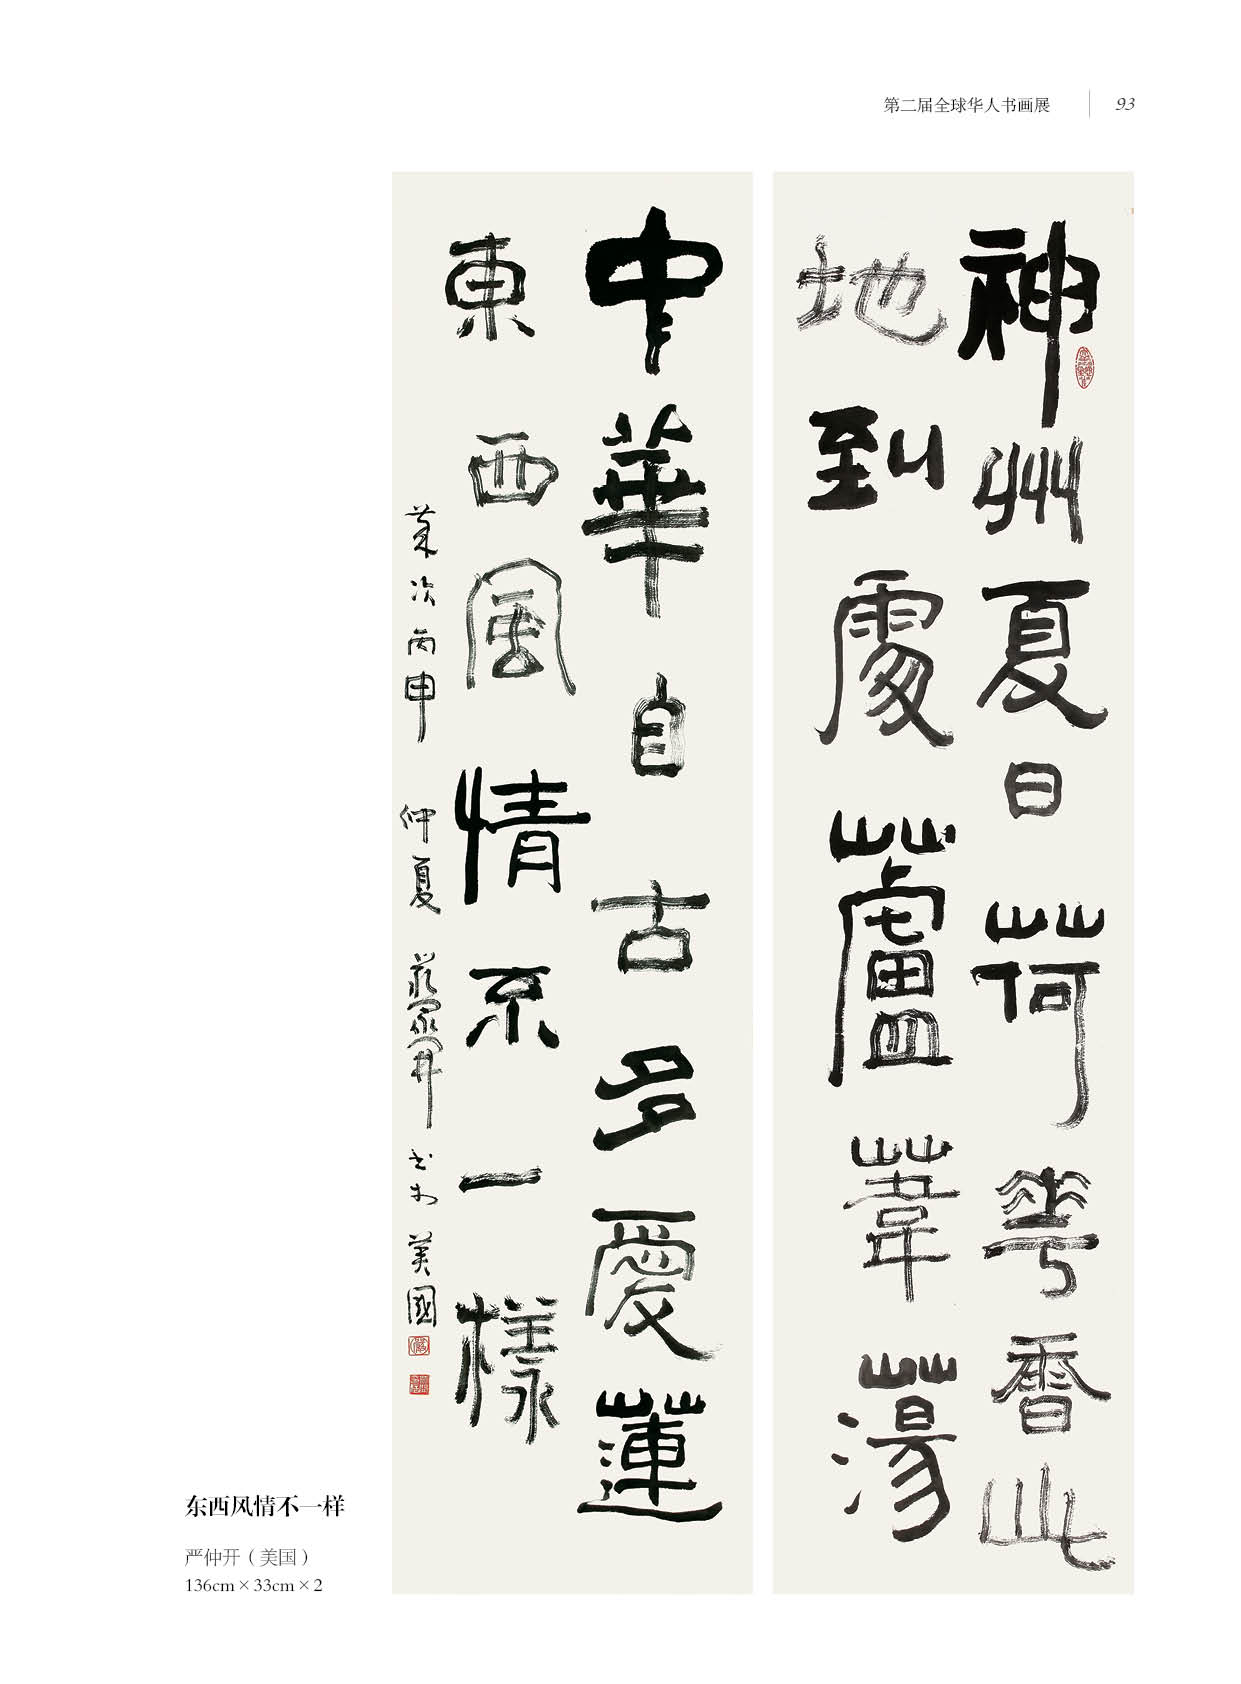 第二届全球华人书画展 93
神州夏日荷華香此
地到處蘆葦蕩
中華自古多愛蓮
東西風情不一樣
次丙申 仲夏 書於美國
东西风情不一样
严仲开（美国）
136cm×33cm×2